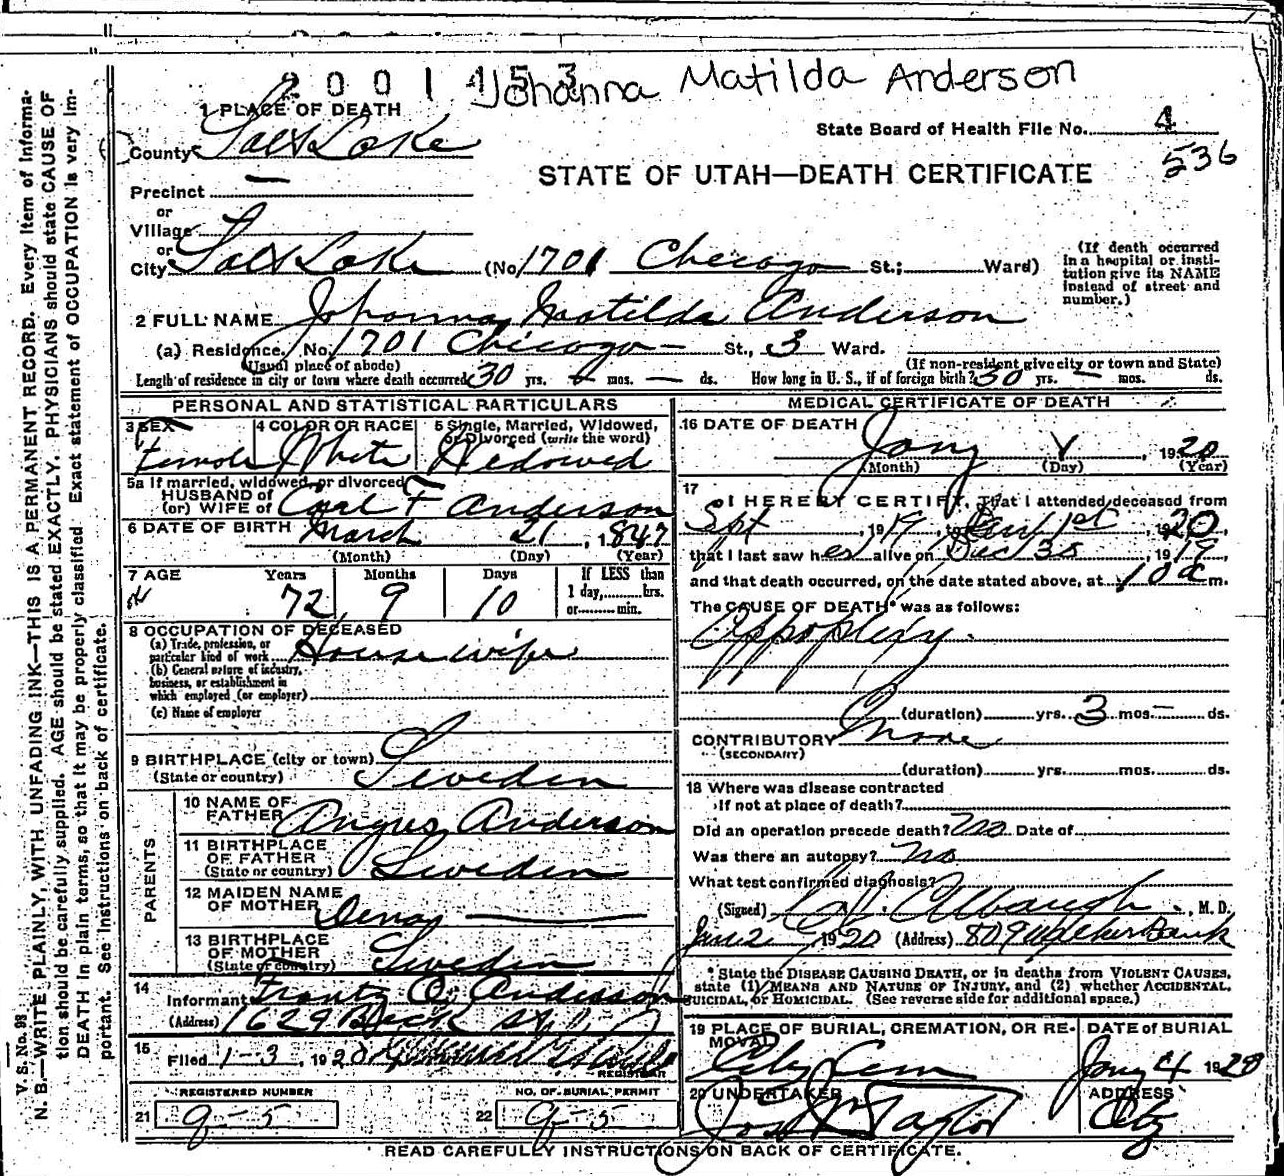 2001453 Johanna Matilda Anderson
1 PLACE OF DEATH
State Board of Health File No. 4
536
County Salt Lake
STATE OF UTAH—DEATH CERTIFICATE
Precinct —
or
Village
or
City Salt Lake (No. 1701 Chicago St.; Ward)
(If death occurred in a hospital or insti-
tution give its NAME
instead of street and
number.)
2 FULL NAME Johanna Matilda Anderson
(a) Residence, No. 1701 Chicago — St., 3 Ward.
(Usual place of abode) (If non-resident give city or town and State)
Length of residence in city or town where death occurred 30 yrs. — mos. — ds. How long in U. S., if of foreign birth? 30 yrs. — mos. ds.
PERSONAL AND STATISTICAL PARTICULARS
3 SEX Female
4 COLOR OR RACE White
5 Single, Married, Widowed,
or Divorced (write the word)
Widowed
5a If married, widowed, or divorced
HUSBAND of
(or) WIFE of Carl F Anderson
6 DATE OF BIRTH March 21, 1847
(Month) (Day) (Year)
7 AGE Years Months Days If LESS than
1 day, hrs.
or min.
72 9 10
8 OCCUPATION OF DECEASED
(a) Trade, profession, or
particular kind of work Housewife
(b) General nature of industry,
business, or establishment in
which employed (or employer)
(c) Name of employer
9 BIRTHPLACE (city or town)
(State or country) Sweden
PARENTS
10 NAME OF
FATHER Angus Anderson
11 BIRTHPLACE
OF FATHER
(State or country) Sweden
12 MAIDEN NAME
OF MOTHER —
13 BIRTHPLACE
OF MOTHER
(State or country) Sweden
14
Informant Frantz O. Anderson
(Address) 1629 Beck St.
15
Filed 1-3, 1920
REGISTRAR
REGISTERED NUMBER
21 9-5
NO. OF BURIAL PERMIT
22 9-5
MEDICAL CERTIFICATE OF DEATH
16 DATE OF DEATH Jany 1, 1920
(Month) (Day) (Year)
17
I HEREBY CERTIFY, That I attended deceased from
Spt, 1919, to Jan 1st, 1920,
that I last saw her alive on Dec 30, 1919,
and that death occurred, on the date stated above, at 10 a m.
The CAUSE OF DEATH* was as follows:
Appoplexy.
(duration) yrs. 3 mos. — ds.
CONTRIBUTORY None
(SECONDARY)
(duration) yrs. mos. ds.
18 Where was disease contracted
if not at place of death?
Did an operation precede death? No Date of
Was there an autopsy? No
What test confirmed diagnosis?
(Signed) Albaugh, M. D.
Jan 2, 1920 (Address) 809 Walker Bank
* State the DISEASE CAUSING DEATH, or in deaths from VIOLENT CAUSES,
state (1) MEANS AND NATURE OF INJURY, and (2) whether ACCIDENTAL,
SUICIDAL, or HOMICIDAL. (See reverse side for additional space.)
19 PLACE OF BURIAL, CREMATION, OR RE-
MOVAL
City Cem
DATE OF BURIAL
Jany 4 1920
20 UNDERTAKER
Jos Wm Taylor
ADDRESS
City
READ CAREFULLY INSTRUCTIONS ON BACK OF CERTIFICATE.
V. S. No. 93
N. B.—WRITE PLAINLY, WITH UNFADING INK—THIS IS A PERMANENT RECORD. Every item of informa-
tion should be carefully supplied. AGE should be stated EXACTLY. PHYSICIANS should state CAUSE OF
DEATH in plain terms, so that it may be properly classified. Exact statement of OCCUPATION is very im-
portant. See instructions on back of certificate.